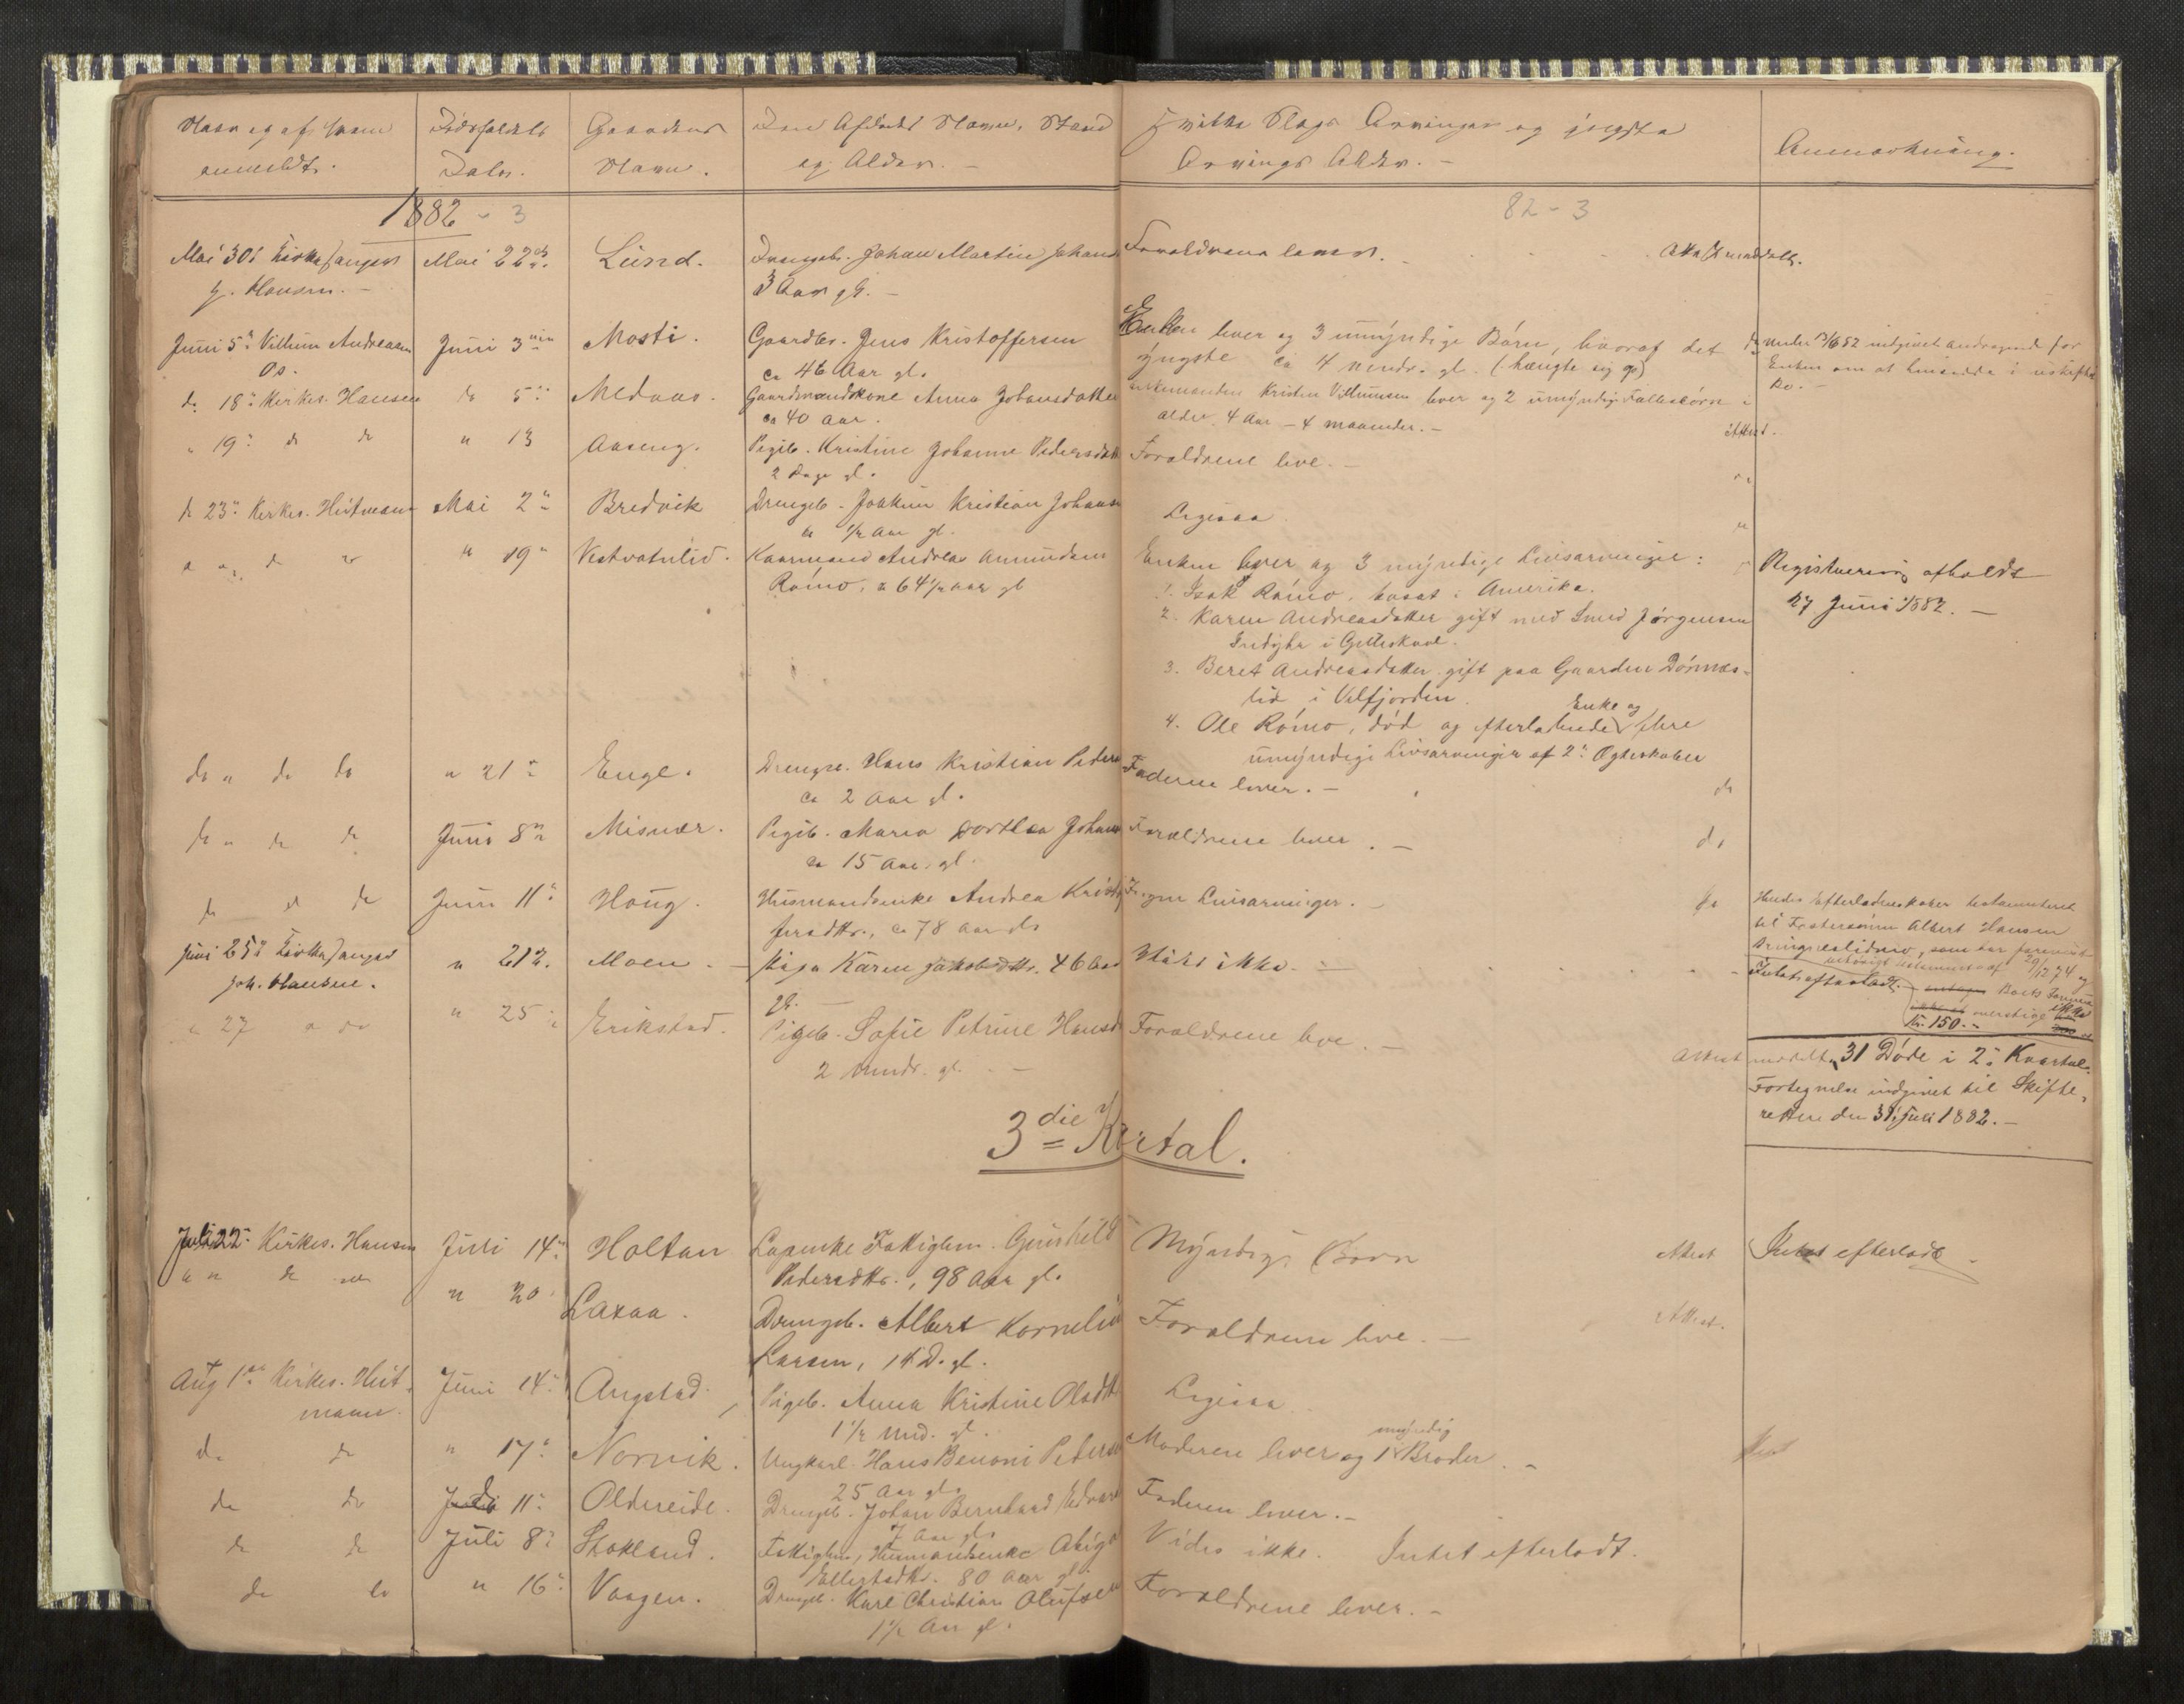 Naar og af hvem
anmeldt.
Dødsfaldets
Dato.
Gaardens
Navn.
Den Afdødes Navn, Stand
og Alder. -
Hvilke Slags Arvinger og yngste
Arvings Alder. -
Anmærkning.
1882 - 3
82 - 3
Mai 30: Kirkesanger
J. Hansen. -
Mai 22de
Lund.
Drengeb. Johan Martin Johans
3 Aar gl. -
Forældrene lever.
Juni 5: Villum Andreasen
Os.
Juni 3die
Mosti.
Gaardbr. Jens Kristoffersen
ca 46 Aar gl.
Enken lever og 3 umyndige Børn, hvoraf det
yngste ca 4 mndr. gl. (hængte sig op)
under 13/6 82 indgivet andragende for
Enken om at hensidde i uskiftet
Bo. -
do 18: Kirkes. Hansen
do 5:
Medaas.
Gaardmandskone Anna Johansdatter
ca 40 aar.
Enkemanden Kristen Villumsen lever og 2 umyndige Fællesbørn i
alder 4 Aar - 4 maaneder. -
" 19: do do
" 13
Aaseng.
Pigeb. Kristine Johanne Pedersdatt
2 Dage gl.
Forældrene leve. -
Attest.
do 23: Kirkes. Heitmann
Mai 2:
Bredvik
Drengeb. Joakim Kristian Johans
ca 1/2 Aar gl.
Ligesaa
" 19"
Vestvatnlid.
Kaarmand Andreas Amundsen
Rømo, ca 64 1/2 aar gl
Enken lever og 3 myndige Livsarvinger:
1. Isak Rømo, bosat i Amerika.
2. Karen Andreasdatter gift med Smed Jørgensen
Indyhr i Gilleskaal.
3. Beret Andreasdatter gift paa Gaarden Dørnæs-
lid i Velfjorden.
Enke og
4. Ole Rømo, død og efterladende flere
umyndige Livsarvinger af 2: Ægteskaber
Registrering afholdt
27 Juni 1882. -
do " do do
" 21:
Enge.
Drengeb. Hans Kristian Peders
ca 2 Aar gl.
Faderen lever. -
do
do " do do
Juni 8:
Misvær.
Pigeb. Maria Dorthea Johans
ca 15 Aar gl.
Forældrene lever. -
do
do " do
Juni 11:
Houg.
Husmandsenke Andrea Kristof
fersdtr., ca 78 aar gl.
Ingen Livsarvinger. -
Hendes Efterladenskaber testamenteret
til Fostersønn Albert Hansen
29/12 74 og
Juni 25: Kirkesanger
Joh. Hansen.
" 21de
Moen. -
Pige Karen Jakobsdtr. 46 Aar
gl.
Vides ikke. -
Intet efterladt.
Boets Formue
overstige ikke
Kr. 150. -
" 27 " do
" 25:
Erikstad.
Pigeb. Sofie Petrine Hansd
2 Mndr. gl. -
Forældrene leve. -
Attest meddelt
31 Døde i 2: Kvartal.
Fortegnelse indgivet til Skifte-
retten den 31: Juli 1882. -
3die Kvrtal.
Juli 22: Kirkes. Hansen
Juli 14:
Holtan
Lapenke Fattiglem. Gunhild
Pedersdtr., 98 Aar gl.
Myndige Børn
Attest
Intet efterladt -
" " do
" 20
Laxaa.
Drengeb. Albert Kornelius
Larsen, 14 D. gl.
Forældrene leve. -
Attest.
Aug 1ste Kirkes. Heit-
mann
Juni 14:
Angstad
Pigeb. Anna Kristine Olsdtr
1 1/2 Mnd. gl.
Ligesaa
do do
" 17:
Norvik.
Ungkarl Hans Benoni Peders
25 Aar gl.
myndig
Moderen lever og 1 Broder. -
do do
11:
Oldereide.
Drengeb. Johan Bernhard Edvard
7 Aar gl.
Faderen lever. -
do do
Juli 8:
Stokland.
Fattiglem, Husmandsenke Abiga
Ellertsdtr. 80 Aar gl.
Vides ikke. Intet efterladt.
do do
" 16:
Vaagen.
Drengeb. Karl Christian Olufsen
1 1/2 Aar gl.
Forældrene lever. -